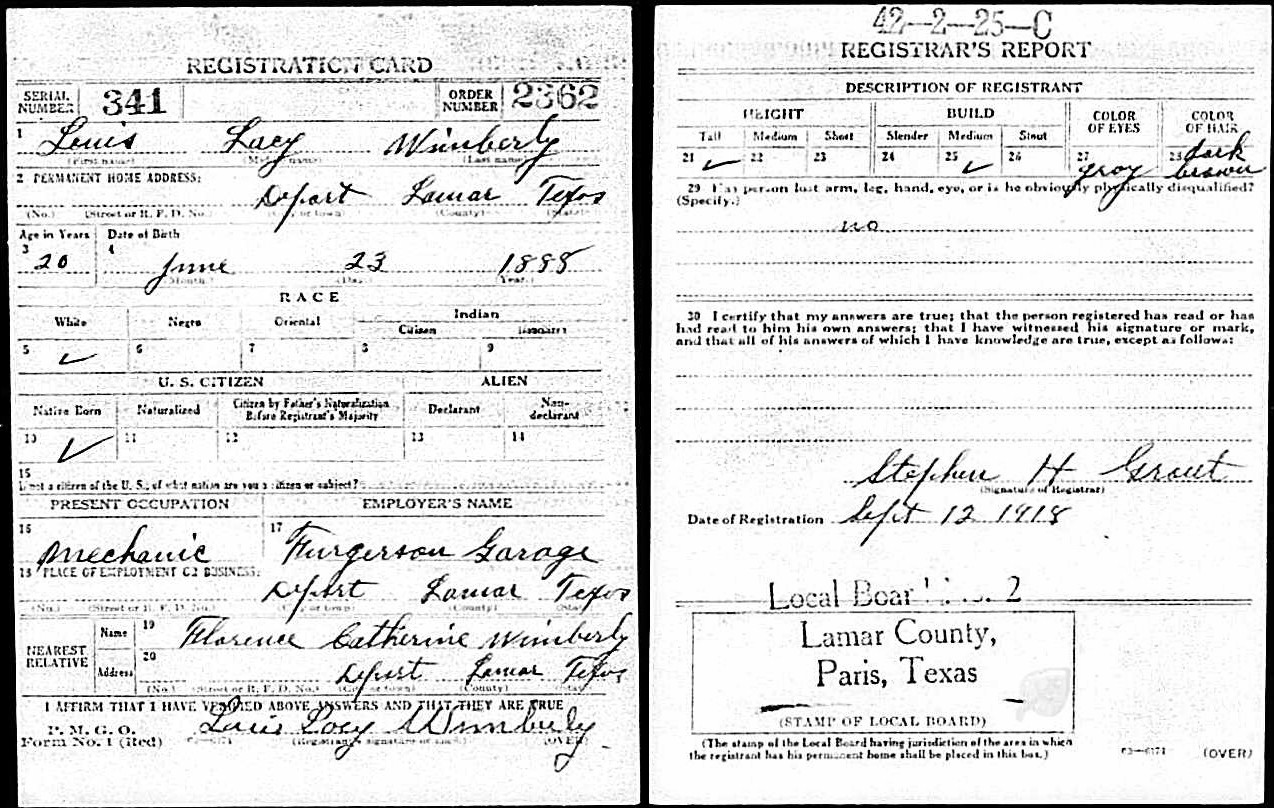 REGISTRATION CARD
SERIAL NUMBER 341 ORDER NUMBER 2362
1 Louis Lacy Wimberly
(First name) (Middle name) (Last name)
2 PERMANENT HOME ADDRESS:
Deport Lamar Texas
(No.) (Street or R. F. D. No.) (City or town) (County) (State)
Age in Years Date of Birth
3 4
20 June 23 1888
(Month.) (Day.) (Year.)
RACE
White Negro Oriental Indian
Citizen Noncitizen
5 ✓ 6 7 8 9
U. S. CITIZEN ALIEN
Native Born Naturalized Citizen by Father's Naturalization Before Registrant's Majority Declarant Non-declarant
10 ✓ 11 12 13 14
15
If not a citizen of the U. S., of what nation are you a citizen or subject?
PRESENT OCCUPATION EMPLOYER'S NAME
16 17
Mechanic Furgerson Garage
18 PLACE OF EMPLOYMENT OR BUSINESS:
Deport Lamar Texas
(No.) (Street or R. F. D. No.) (City or town) (County) (State)
NEAREST RELATIVE Name 19 Florence Catherine Wimberly
Address 20 Deport Lamar Texas
(No.) (Street or R. F. D. No.) (City or town) (County) (State)
I AFFIRM THAT I HAVE VERIFIED ABOVE ANSWERS AND THAT THEY ARE TRUE
P. M. G. O.
Form No. 1 (Red) Louis Lacy Wimberly
(Registrant's signature or mark) (OVER)
42-2-25-C
REGISTRAR'S REPORT
DESCRIPTION OF REGISTRANT
HEIGHT BUILD COLOR OF EYES COLOR OF HAIR
Tall Medium Short Slender Medium Stout
21 ✓ 22 23 24 25 ✓ 26 27 gray 28 dark brown
29 Has person lost arm, leg, hand, eye, or is he obviously physically disqualified?
(Specify.)
no
30 I certify that my answers are true; that the person registered has read or has
had read to him his own answers; that I have witnessed his signature or mark,
and that all of his answers of which I have knowledge are true, except as follows:
Stephen H Grout
(Signature of Registrar)
Date of Registration Sept 12 1918
Local Board No. 2
Lamar County,
Paris, Texas
(STAMP OF LOCAL BOARD)
(The stamp of the Local Board having jurisdiction of the area in which
the registrant has his permanent home shall be placed in this box.)
03-6171 (OVER)